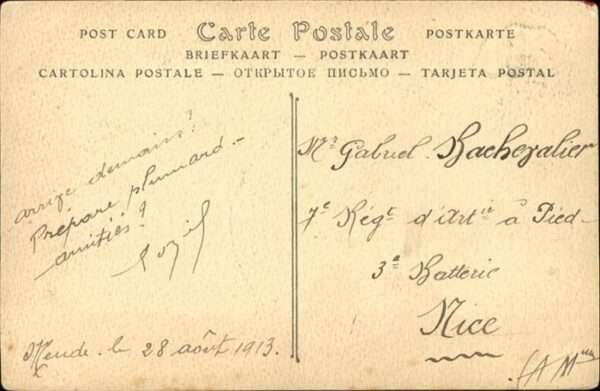 POST CARD Carte Postale POSTKARTE
BRIEFKAART — POSTKAART
CARTOLINA POSTALE — ОТКРЫТОЕ ПИСЬМО — TARJETA POSTAL
arrive demain!
Prépare plumard.—
amitiés!
Mende. le 28 août 1913.
Mr Gabriel Bachevalier
7e Régt d'Artie à Pied
3e Batterie
Nice
(A Mmes